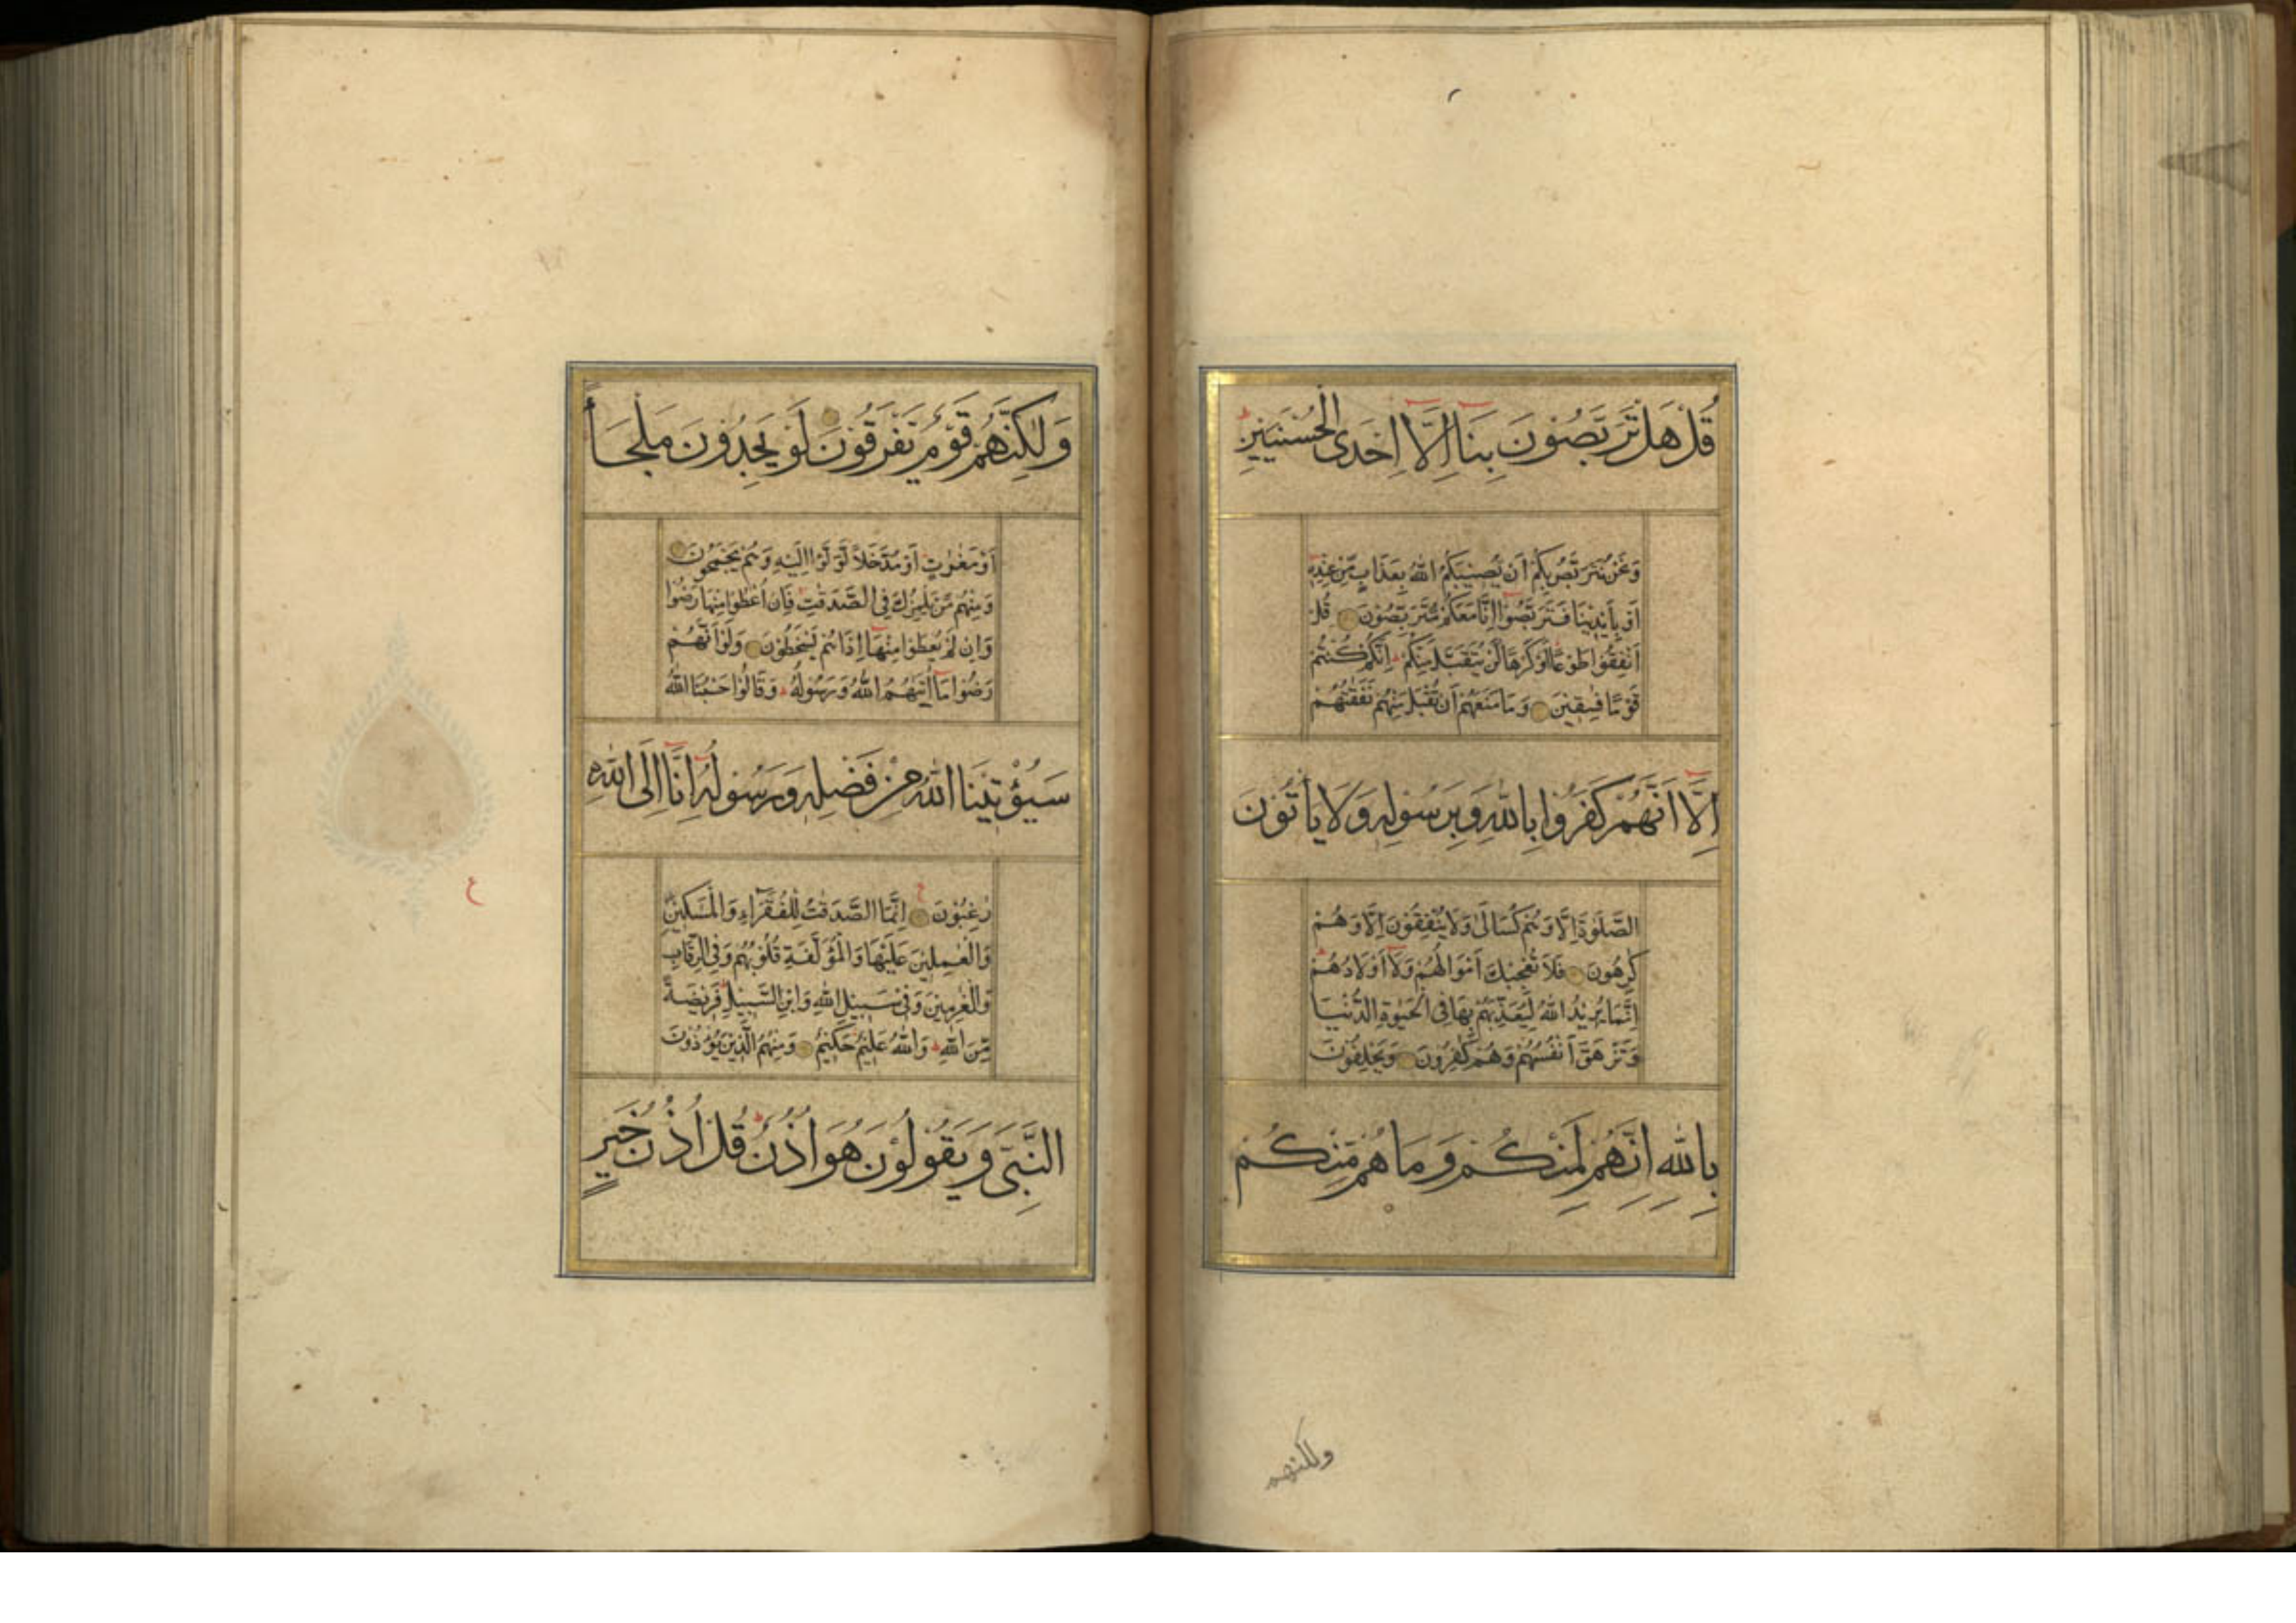 قُلْ هَلْ تَرَبَّصُونَ بِنَا إِلَّا إِحْدَى الْحُسْنَيَيْنِ
وَنَحْنُ نَتَرَبَّصُ بِكُمْ اَنْ يُصِيبَكُمُ اللهُ بِعَذَابٍ مِّنْ عِنْدِهِ
اَوْ بِاَيْدِينَا فَتَرَبَّصُوا اِنَّا مَعَكُمْ مُتَرَبِّصُونَ قُلْ
اَنْفِقُوا طَوْعًا اَوْ كَرْهًا لَنْ يُتَقَبَّلَ مِنْكُمْ اِنَّكُمْ كُنْتُمْ
قَوْمًا فٰسِقِينَ وَمَا مَنَعَهُمْ اَنْ تُقْبَلَ مِنْهُمْ نَفَقٰتُهُمْ
اِلَّا اَنَّهُمْ كَفَرُوا بِاللهِ وَبِرَسُولِهِ وَلَا يَأْتُونَ
الصَّلٰوةَ اِلَّا وَهُمْ كُسَالٰى وَلَا يُنْفِقُونَ اِلَّا وَهُمْ
كٰرِهُونَ فَلَا تُعْجِبْكَ اَمْوَالُهُمْ وَلَا اَوْلَادُهُمْ
اِنَّمَا يُرِيدُ اللهُ لِيُعَذِّبَهُمْ بِهَا فِي الْحَيٰوةِ الدُّنْيَا
وَتَزْهَقَ اَنْفُسُهُمْ وَهُمْ كٰفِرُونَ وَيَحْلِفُونَ
بِاللهِ اِنَّهُمْ لَمِنْكُمْ وَمَا هُمْ مِّنْكُمْ
ولكنهم
وَلٰكِنَّهُمْ قَوْمٌ يَّفْرَقُونَ لَوْ يَجِدُونَ مَلْجَأً
اَوْ مَغٰرٰتٍ اَوْ مُدَّخَلًا لَّوَلَّوْا اِلَيْهِ وَهُمْ يَجْمَحُونَ
وَمِنْهُمْ مَّنْ يَلْمِزُكَ فِي الصَّدَقٰتِ فَاِنْ اُعْطُوا مِنْهَا رَضُوا
وَاِنْ لَمْ يُعْطَوْا مِنْهَا اِذَا هُمْ يَسْخَطُونَ وَلَوْ اَنَّهُمْ
رَضُوا مَا اٰتٰيهُمُ اللهُ وَرَسُولُهُ وَقَالُوا حَسْبُنَا اللهُ
سَيُؤْتِينَا اللهُ مِنْ فَضْلِهِ وَرَسُولُهُ اِنَّا اِلَى اللهِ
رٰغِبُونَ اِنَّمَا الصَّدَقٰتُ لِلْفُقَرَاءِ وَالْمَسٰكِينِ
وَالْعٰمِلِينَ عَلَيْهَا وَالْمُؤَلَّفَةِ قُلُوبُهُمْ وَفِي الرِّقَابِ
وَالْغٰرِمِينَ وَفِي سَبِيلِ اللهِ وَابْنِ السَّبِيلِ فَرِيضَةً
مِّنَ اللهِ وَاللهُ عَلِيمٌ حَكِيمٌ وَمِنْهُمُ الَّذِينَ يُؤْذُونَ
النَّبِيَّ وَيَقُولُونَ هُوَ اُذُنٌ قُلْ اُذُنُ خَيْرٍ
ع